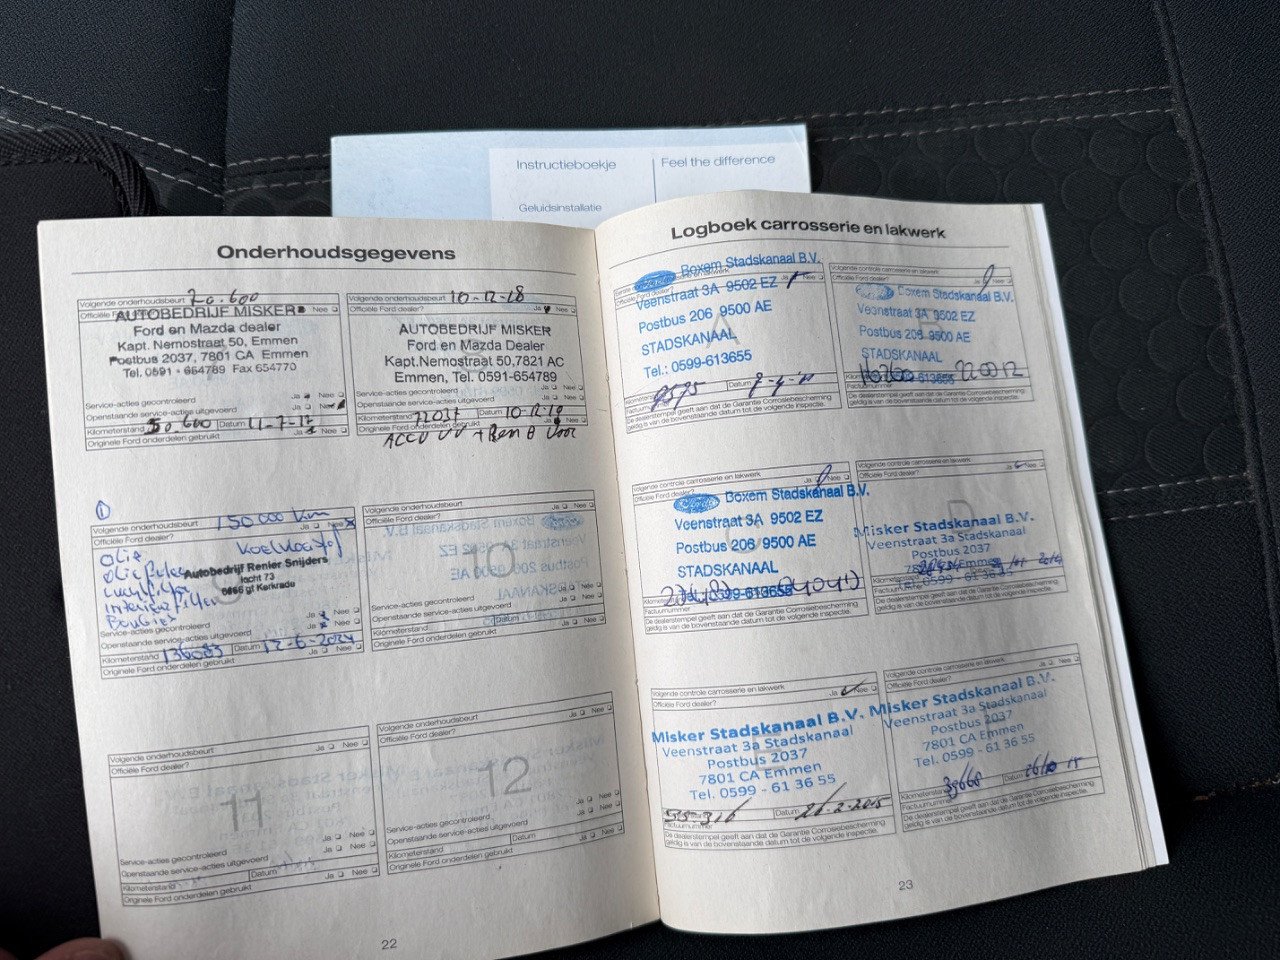 Instructieboekje
Feel the difference
Geluidsinstallatie
Onderhoudsgegevens
Volgende onderhoudsbeurt 70.600
Officiële Ford dealer? Nee
AUTOBEDRIJF MISKER
Ford en Mazda dealer
Kapt. Nemostraat 50, Emmen
Postbus 2037, 7801 CA Emmen
Tel. 0591 - 654789 Fax 654770
Service-acties gecontroleerd Ja Nee
Openstaande service-acties uitgevoerd Ja Nee
Kilometerstand 50.600 Datum
Originele Ford onderdelen gebruikt Ja Nee
Volgende onderhoudsbeurt 10-12-18
Officiële Ford dealer? Ja Nee
AUTOBEDRIJF MISKER
Ford en Mazda Dealer
Kapt.Nemostraat 50,7821 AC
Emmen, Tel. 0591-654789
Service-acties gecontroleerd Ja Nee
Openstaande service-acties uitgevoerd Ja Nee
Kilometerstand Datum
Originele Ford onderdelen gebruikt
Volgende onderhoudsbeurt 150 000 km
Officiële Ford dealer? Ja Nee
Olie Koelvloeistof
Oliefilter
Luchtfilter
Interieurfilter
Bougies
Autobedrijf Renier Snijders
locht 73
6466 gf Kerkrade
Service-acties gecontroleerd
Openstaande service-acties uitgevoerd
Kilometerstand 136083 Datum 12-6-2024
Originele Ford onderdelen gebruikt
Volgende onderhoudsbeurt
Officiële Ford dealer? Ja Nee
10
Service-acties gecontroleerd Ja Nee
Openstaande service-acties uitgevoerd Ja Nee
Kilometerstand Datum
Originele Ford onderdelen gebruikt Ja Nee
Volgende onderhoudsbeurt
Officiële Ford dealer? Ja Nee
11
Service-acties gecontroleerd Ja Nee
Openstaande service-acties uitgevoerd Ja Nee
Kilometerstand Datum
Originele Ford onderdelen gebruikt Ja Nee
Volgende onderhoudsbeurt
Officiële Ford dealer? Ja Nee
12
Service-acties gecontroleerd Ja Nee
Openstaande service-acties uitgevoerd Ja Nee
Kilometerstand Datum
Originele Ford onderdelen gebruikt Ja Nee
22
Logboek carrosserie en lakwerk
Officiële Ford dealer? Ja Nee
A
Boxem Stadskanaal B.V.
Veenstraat 3A 9502 EZ
Postbus 206 9500 AE
STADSKANAAL
Tel.: 0599-613655
Datum
Factuurnummer
De dealerstempel geeft aan dat de Garantie Corrosiebescherming
geldig is van de bovenstaande datum tot de volgende inspectie.
Volgende controle carrosserie en lakwerk
Officiële Ford dealer? Ja Nee
B
Boxem Stadskanaal B.V.
Veenstraat 3A 9502 EZ
Postbus 206 9500 AE
STADSKANAAL
Factuurnummer
De dealerstempel geeft aan dat de Garantie Corrosiebescherming
geldig is van de bovenstaande datum tot de volgende inspectie.
Volgende controle carrosserie en lakwerk
Officiële Ford dealer? Ja Nee
C
Boxem Stadskanaal B.V.
Veenstraat 3A 9502 EZ
Postbus 206 9500 AE
STADSKANAAL
Tel.: 0599-613655
Factuurnummer
De dealerstempel geeft aan dat de Garantie Corrosiebescherming
geldig is van de bovenstaande datum tot de volgende inspectie.
Volgende controle carrosserie en lakwerk
Officiële Ford dealer? Ja Nee
D
Misker Stadskanaal B.V.
Veenstraat 3a Stadskanaal
Postbus 2037
De dealerstempel geeft aan dat de Garantie Corrosiebescherming
geldig is van de bovenstaande datum tot de volgende inspectie.
Volgende controle carrosserie en lakwerk
Officiële Ford dealer? Ja Nee
E
Misker Stadskanaal B.V.
Veenstraat 3a Stadskanaal
Postbus 2037
7801 CA Emmen
Tel. 0599 - 61 36 55
Datum 26-2-2015
Factuurnummer
De dealerstempel geeft aan dat de Garantie Corrosiebescherming
geldig is van de bovenstaande datum tot de volgende inspectie.
Volgende controle carrosserie en lakwerk
Officiële Ford dealer? Ja Nee
Misker Stadskanaal B.V.
Veenstraat 3a Stadskanaal
Postbus 2037
7801 CA Emmen
Tel. 0599 - 61 36 55
Kilometerstand 39668 Datum
Factuurnummer
De dealerstempel geeft aan dat de Garantie Corrosiebescherming
geldig is van de bovenstaande datum tot de volgende inspectie.
23